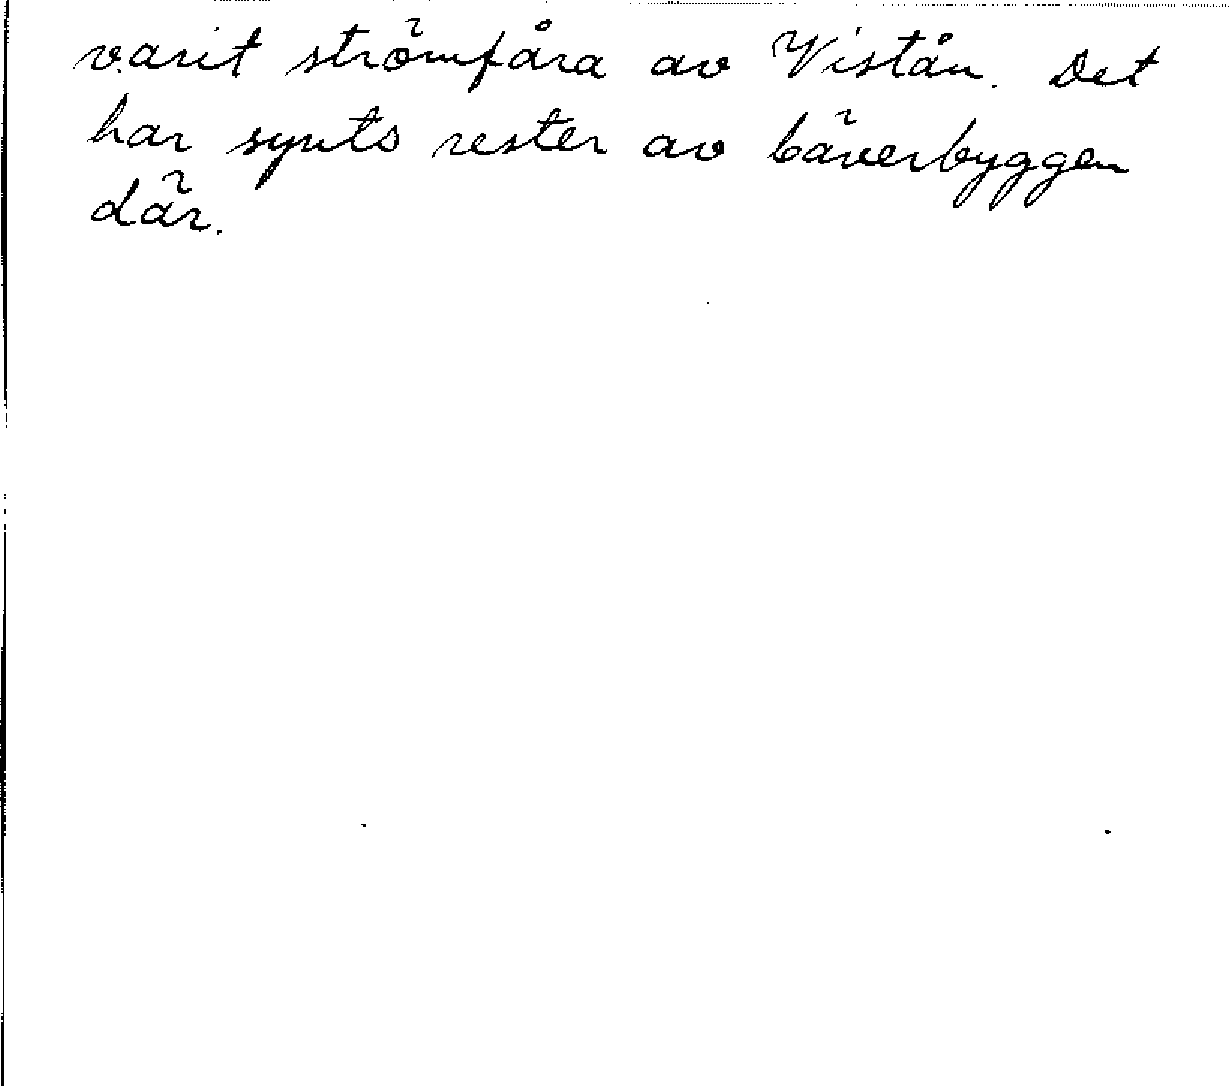 varit strömfåra av Vistån. Det
har synts rester av bäverbyggen
där.